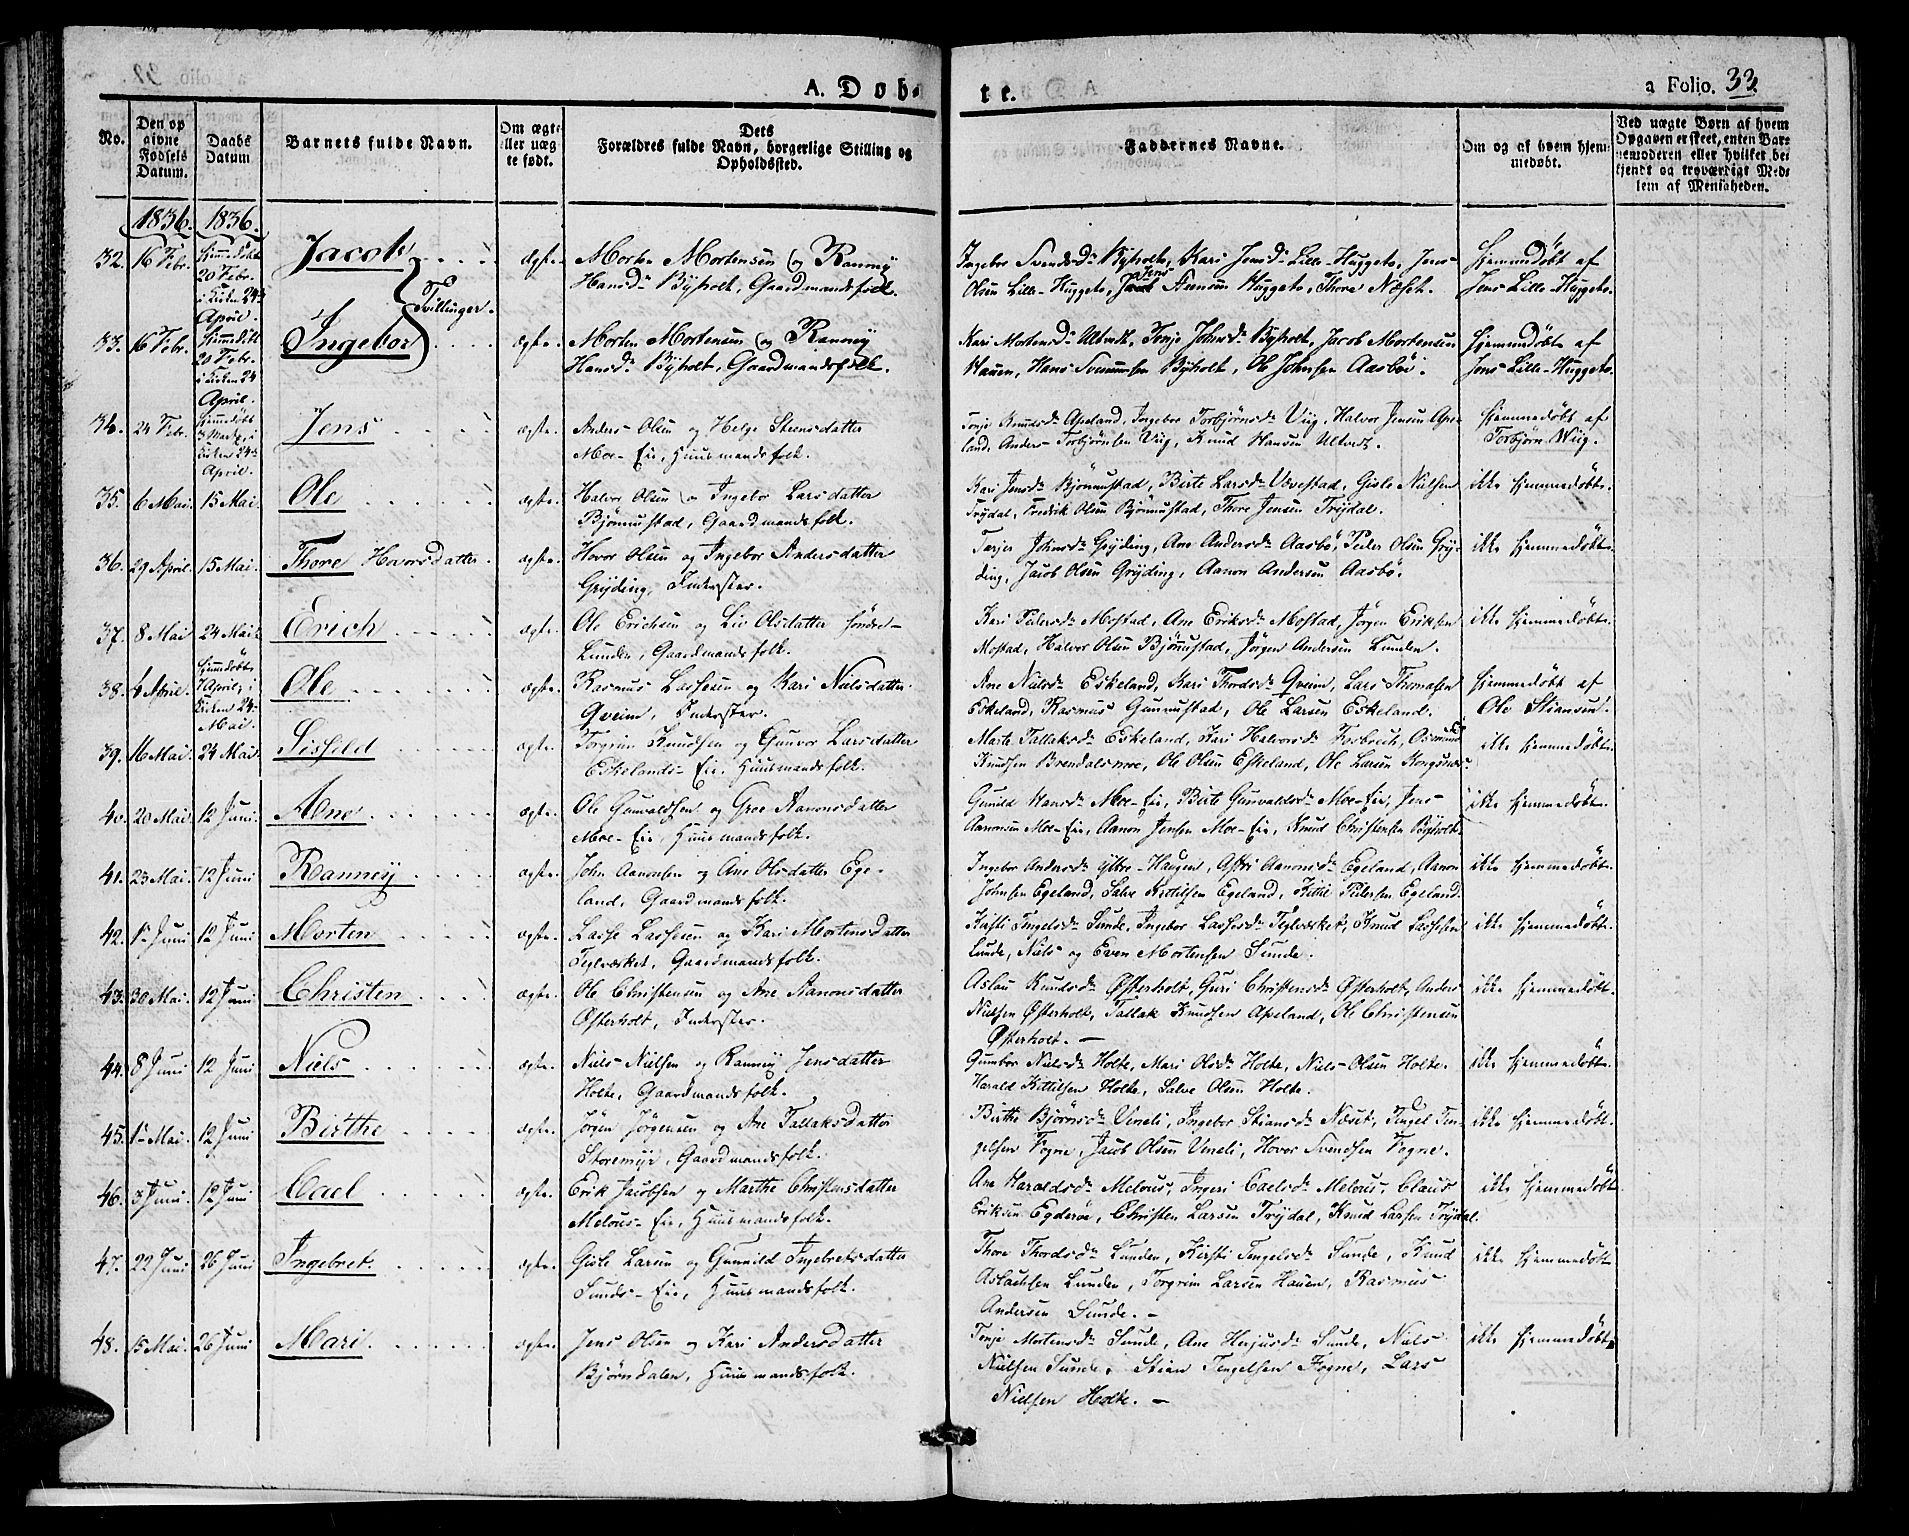 A. Døb-
te.
a Folio. 33.
No.
Den op
givne
Fødsels
Datum.
Daabs
Datum
Barnets fulde Navn.
Om ægte
eller uæg
te født.
Dets
Forældres fulde Navn, borgerlige Stilling og
Opholdssted.
Faddernes Navne.
Om og af hvem hjem
medøbt.
Ved uægte Børn af hvem
Opgaven er skeet, enten Bar
nemoderen eller hvilket be
kjendt og troværdigt Med
lem af Menigheden.
1836. 1836.
32. 16 Febr. hjemmedöbt 20 Febr. i Kirken 24 April. Jacob Tvillinger. ægte. Morten Mortensen og Rannöy
Hansd. Byholt, Gaardmandsfolk.
Ingebor Svendsd. Byholt, Kari Jensd. Lille-Huggeto, Jens
Olsen Lille-Huggeto, Jens Huggeto, Thore Næset.
hjemmedöbt af
Jens Lille-Huggeto.
33. 16 Febr. hjemmedöbt 20 Febr. i Kirken 24 April. Ingebor ægte. Morten Mortensen og Rannöy
Hansd. Byholt, Gaardmandsfolk.
Kari Mortensd. Ultvedt, Tonje Johnsd. Byholt, Jacob Mortensen
Hauen, Hans Byholt, Ole Johnsen Aasböe.
hjemmedöbt af
Jens Lille-Huggeto.
34. 24 Febr. hjemmedöbt 3 Marts, i Kirken 24 April. Jens ægte. Anders Olsen og Helge Steensdatter
Moe-Eie, Huusmandsfolk.
Tonje Knudsd. Apeland, Ingebor Torbjörnsd. Viig, Halvor Jensen Ape-
land, Anders Torbjörnsen Viig, Knud Hansen Ultvedt.
hjemmedöbt af
Torbjörn Wiig.
35. 6 Mai. 15 Mai. Ole ægte. Halvor Olsen og Ingebor Larsdatter
Björnnustad, Gaardmandsfolk.
Kari Jensd. Björnnustad, Birte Larsd. Uvestad, Gisle Nielsen
Trydal, Fredrik Olsen Björnnustad, Thore Jensen Trydal.
ikke hjemmedöbt.
36. 29 April. 15 Mai. Thore Hovorsdatter. ægte. Hovor Olsen og Ingebor Andersdatter
Gryding, Inderster.
Torjer Johnsd. Gryding, Ane Andersd. Aasbö, Peder Olsen Gry-
ding, Jacob Olsen Gryding, Aanon Andersen Aasbö.
ikke hjemmedöbt.
37. 8 Mai 24 Mai. Erich ægte. Ole Erichsen og Liv Olsdatter söndre-
Lunden, Gaardmandsfolk.
Kari Pedersd. Mostad, Ane Eriksd. Mostad, Jörgen Eriksen
Mostad, Halvor Olsen Björnnustad, Jörgen Andersen Lunden.
ikke hjemmedöbt.
38. 4 April. hjemmedöbt 7 April, i Kirken 24 Mai. Ole ægte. Rasmus Lassesen og Kari Nielsdatter
Qveim, Inderster.
Ane Nielsd. Eskeland, Kari Thordsd. Qveim, Lars Thomasen
Eskeland, Rasmus Gunnustad, Ole Larsen Eskeland.
hjemmedöbt af
Ole Stiansen.
39. 16 Mai. 24 Mai. Sissild ægte. Torgrim Knudsen og Gunvor Larsdatter
Eskelands-Eie, Huusmandsfolk.
Marte Tallaksd. Eskeland, Kari Halvorsd. Osmund
Knudsen Brendalsmoe, Ole Olsen Eskeland, Ole Larsen
ikke hjemmedöbt.
40. 20 Mai 12 Juni. Ane ægte. Ole Gunvaldsen og Groe Aanonsdatter
Moe-Eie, Huusmandsfolk.
Gunild Hansd. Moe-Eie, Birte Gunvaldsd. Moe-Eie, Jens
Aanonsen Moe-Eie, Aanon Jensen Moe-Eie, Knud Christensen Byholt.
ikke hjemmedöbt.
41. 23 Mai. 12 Juni Rannöy ægte. John Aanonsen og Ane Olsdatter Ege-
land, Gaardmandsfolk.
Ingebor Andersd. ytre-Haugen, Astri Aanonsd. Egeland, Aanon
Johnsen Egeland, Salve Kittilsen Egeland, Kittil Pedersen Egeland.
ikke hjemmedöbt.
42. 1 Juni 12 Juni Morten ægte. Lasse Lassesen og Kari Mortensdatter
Teglværket, Gaardmandsfolk.
Kisti Tengelsd. Sunde, Ingebor Lassesd. Teglværket, Knud Lassesen
Lunde, Niels og Even Mortensen Sunde.
ikke hjemmedöbt.
43. 30 Mai. 12 Juni Christen ægte. Ole Christensen og Ane Aanonsdatter
Østerholt, Inderster.
Aslau Knudsd. Østerholt, Guri Christensd. Østerholt, Anders
Nielsen Østerholt, Tallak Knudsen Apeland, Ole Christensen
Østerholt. —
ikke hjemmedöbt.
44. 8 Juni 12 Juni Niels ægte. Niels Nielsen og Rannöy Jensdatter
Holte, Gaardmandsfolk.
Gunbor Nielsd. Holte, Mari Olsd. Holte, Niels Olsen Holte.
Harald Kittilsen Holte, Salve Olsen Holte.
ikke hjemmedöbt.
45. 1 Mai. 12 Juni Birthe ægte. Jörgen Jörgensen og Ane Tallaksdatter
Storemyr, Gaardmandsfolk.
Birthe Björnsd. Veneli, Ingebor Stiansd. Næset, Tengel Ten-
gelsen Fogne, Jacob Olsen Veneli, Hovor Svendsen Fogne.
ikke hjemmedöbt.
46. 3 Juni. 12 Juni Cael ægte. Erik Jacobsen og Marthe Christensdatter
Melaus-Eie, Huusmandsfolk.
Ane Haraldsd. Melaus, Ingeri Caelsd. Melaus, Claus
Eriksen Egderøe, Christen Larsen Trydal, Knud Larsen Trydal.
ikke hjemmedöbt.
47. 22 Juni 26 Juni Ingebret. ægte. Gisle Larsen og Gunnild Ingebretsdatter
Sunds-Eie, Huusmandsfolk.
Thore Thordsd. Lunden, Kirsti Tengelsd. Sunde, Knud
Aslachsen Lunden, Torgrim Larsen Hauen, Rasmus
Andersen Sunde. —
ikke hjemmedöbt.
48. 15 Mai. 26 Juni Mari. ægte. Jens Olsen og Kari Andersdatter
Björndalen, Huusmandsfolk.
Tonje Mortensd. Sunde, Ane Sunde, Niels
Nielsen Sunde, Stian Tengelsen Fogne, Lars
Nielsen Holte. —
ikke hjemmedöbt.